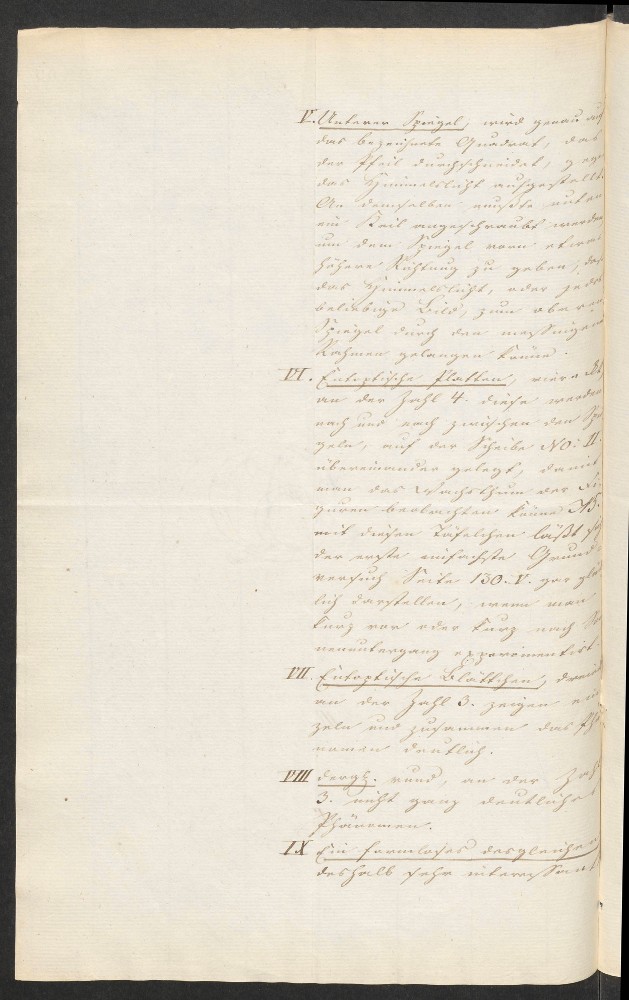 V. Unterer Spiegel, wird genau auf
das bezeichnete Quadrat, das
der Pfeil durchschneidet, gegen
das Himmelslicht aufgestellt.
An demselben müßte unten
ein Keil angeschraubt werden,
um dem Spiegel vorn etwas
höhere Richtung zu geben, daß
das Himmelslicht, oder jedes
beliebige Bild, zum oberen
Spiegel durch den messingenen
Rahmen gelangen könne.
VI. Entoptische Platten, viere
an der Zahl 4. diese werden
nach und nach zwischen den Spie
geln, auf der Scheibe NO: II.
übereinander gelegt, damit
man das Wachsthum der Fi
guren beobachten könne. NB.
mit diesen Täfelchen läßt sich
der erste einfachste Grund
versuch Seite 130. V. gar glück
lich darstellen, wenn man
kurz vor oder kurz nach So
nenuntergang experimentirt.
VII. Entoptische Blättchen,
an der Zahl 3. zeigen ein
zeln und zusammen das Phä
nomen deutlich.
VIII dergl. rund, an der Zahl
3. nicht ganz deutliches
Phänomen.
IX Ein formloses desgleichen
deshalb sehr interessant